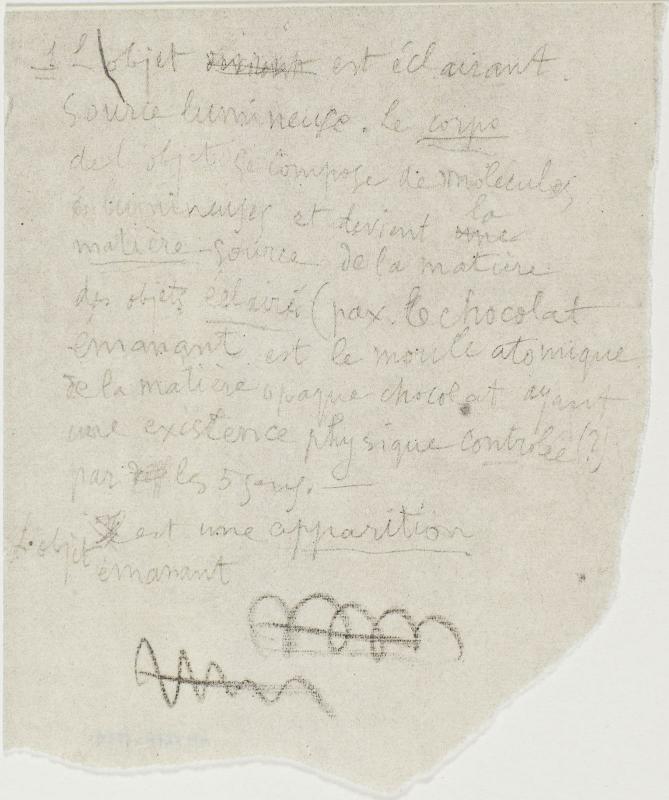 1 L'objet est éclairant.
Source lumineuse. Le corps
de l'objet se compose de molécules
lumineuses et devient la
matière source de la matière
des objets éclairés (par ex. le chocolat
émanant est le moule atomique
de la matière opaque chocolat ayant
une existence physique contrôlée(?)
par les 5 sens. —
L'objet est une apparition
émanant